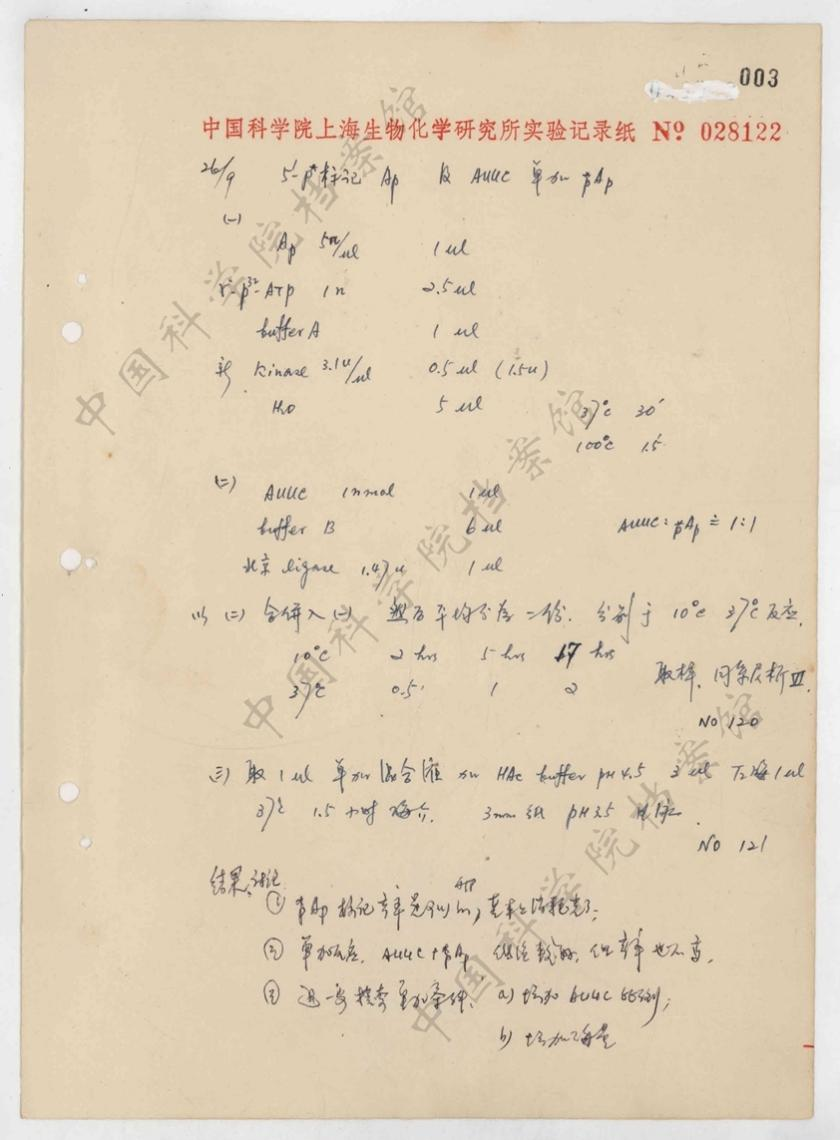 003
中国科学院上海生物化学研究所实验记录纸 Nº 028122
26/9 5'-p* 标记 Ap 及 AUUC 单加 *pAp
(一)
Ap 5n/ul 1 ul
r-p³²-ATP 1n 2.5 ul
buffer A 1 ul
新 Kinase 3.1u/ul 0.5 ul (1.5u)
H₂O 5 ul
37°C 30'
100°C 1.5'
(二) AUUC 1nmol 1 ul
buffer B 6 ul
AUUC : *pAp ≐ 1:1
北京 ligase 1.47u 1 ul
以 (二) 合併入 (一) 然后平均分存二份. 分别于 10°C 37°C 反应.
10°C 2 hrs 5 hrs 17 hrs
37°C 0.5' 1 2
取样. 同系层析 VI.
NO 120
(三) 取 1 ul 单加混合液 加 HAc buffer pH 4.5 3 ul T₂酶 1 ul
37°C 1.5 小时 3mm 纸 pH 3.5
NO 121
结果讨论
① *pAp 标记 ATP
② 单加反应. AUUC + *pAp 但 产率也不高.
③ 进一步探索单加条件. a) 增加 AUUC 比例;
b) 增加酶量
中国科学院档案馆
中国科学院档案馆
中国科学院档案馆